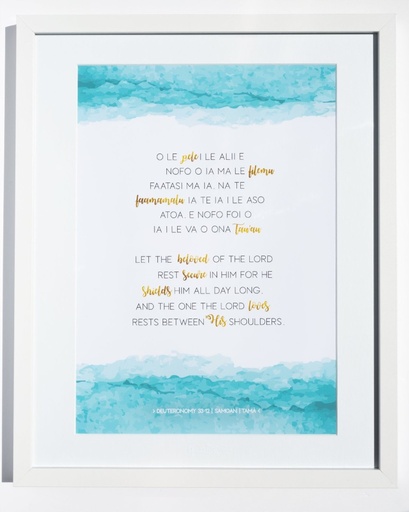 O LE pele I LE ALII E
NOFO O IA MA LE filemu
FAATASI MA IA. NA TE
faamamalu IA TE IA I LE ASO
ATOA. E NOFO FOI O
IA I LE VA O ONA Tau'au
LET THE beloved OF THE LORD
REST secure IN HIM FOR HE
shields HIM ALL DAY LONG.
AND THE ONE THE LORD loves
RESTS BETWEEN His SHOULDERS.
DEUTERONOMY 33:12 | SAMOAN | TAMA